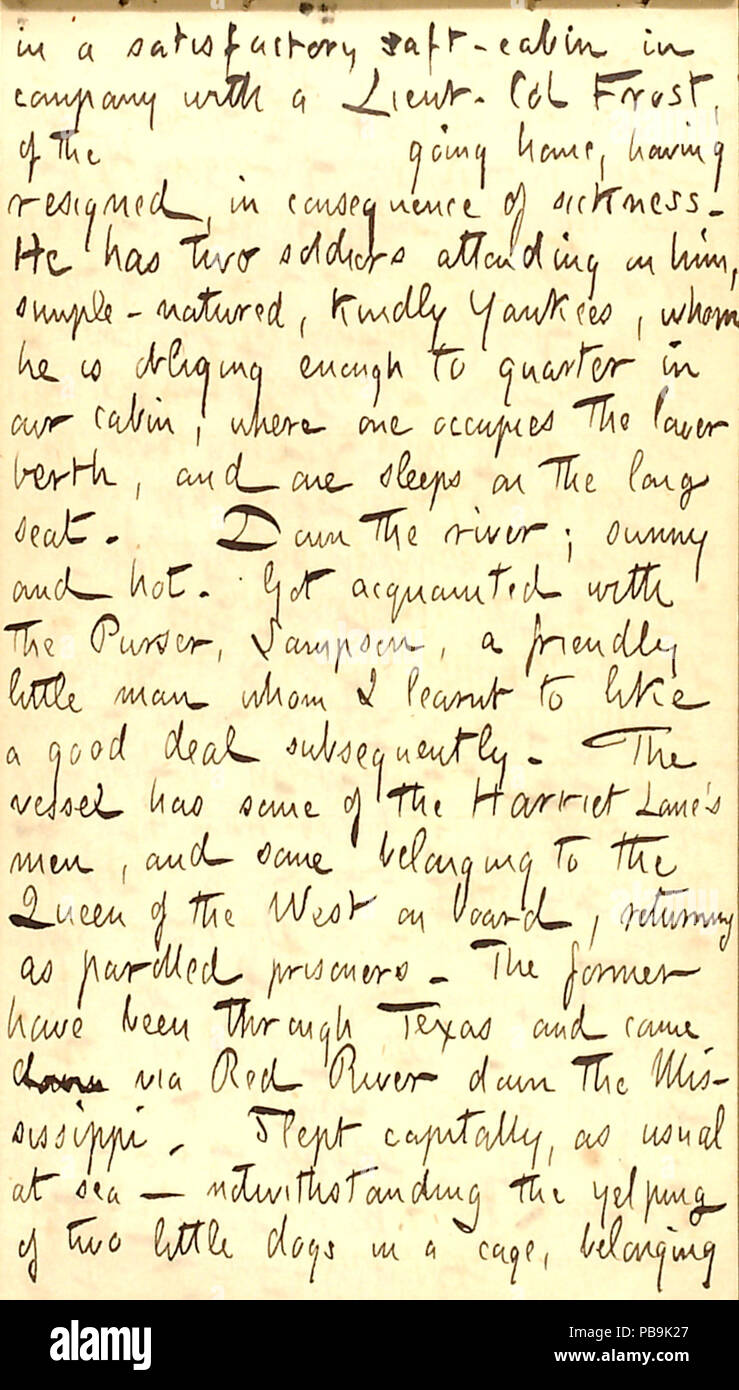 in a satisfactory aft-cabin in
company with a Lieut. Col Frost,
of the going home, having
resigned, in consequence of sickness.
He has two soldiers attending on him,
simple-natured, kindly Yankees, whom
he is obliging enough to quarter in
our cabin, where one occupies the lower
berth, and one sleeps on the long
seat. Down the river; sunny
and hot. Got acquainted with
the Purser, Sampson, a friendly
little man whom I learnt to like
a good deal subsequently. The
vessel has some of the Harriet Lane's
men, and some belonging to the
Queen of the West on board, returning
as parolled prisoners. The former
have been through Texas and came
down via Red River down the Mis-
sissippi. Slept capitally, as usual
at sea — notwithstanding the yelping
of two little dogs in a cage, belonging
alamy
Image ID: PB9K27
www.alamy.com